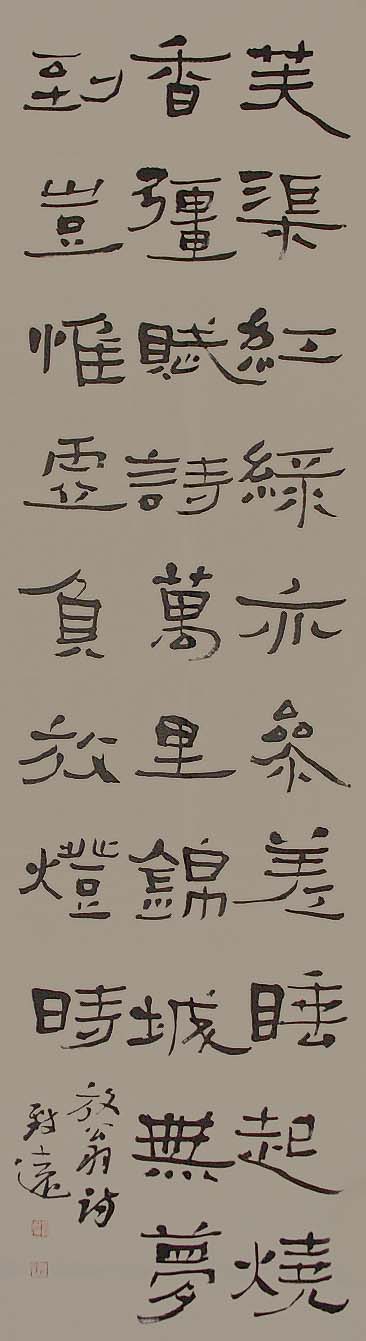 芙渠紅綠亦參差睡起燒
香彊賦詩萬里錦城無夢
到豈惟虛負放燈時
放翁詩
致遠